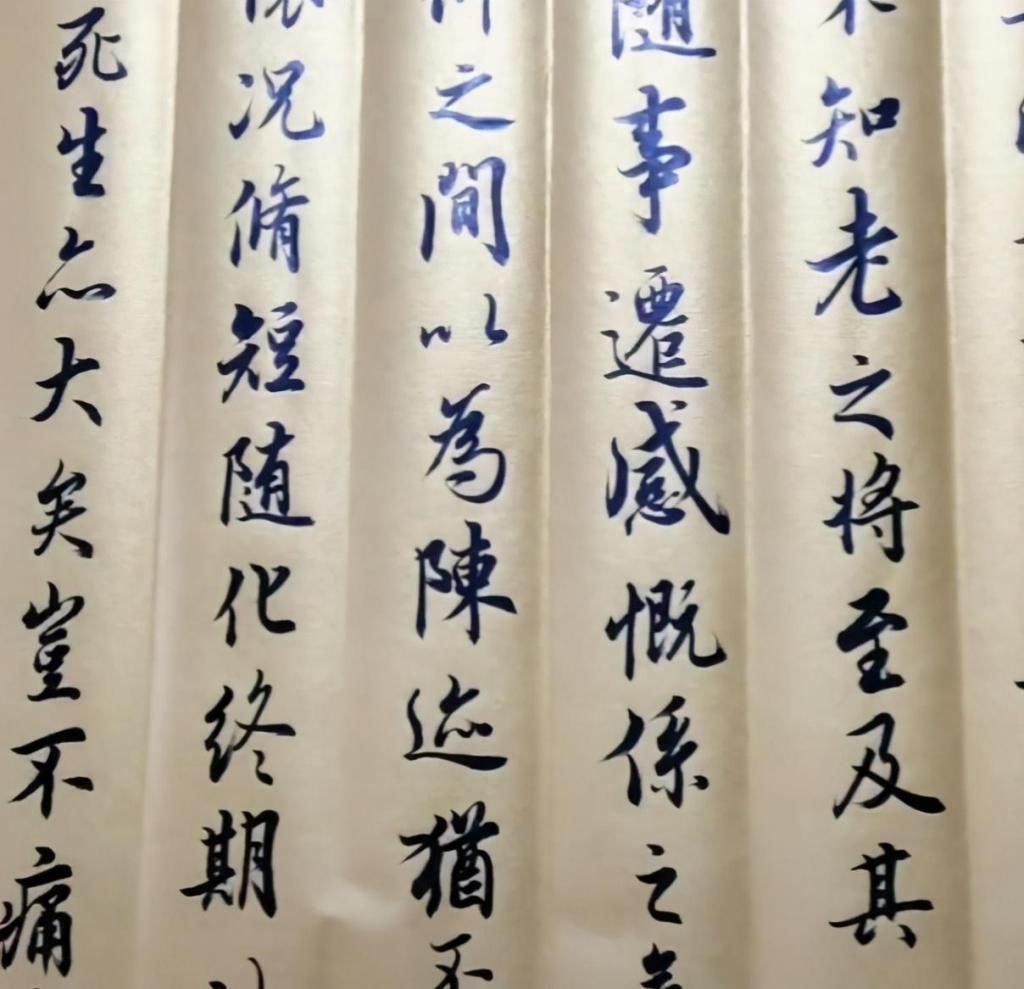 知老之将至及其
随事遷感慨係之
之間以為陳迹猶不
况脩短随化終期
死生亦大矣豈不痛